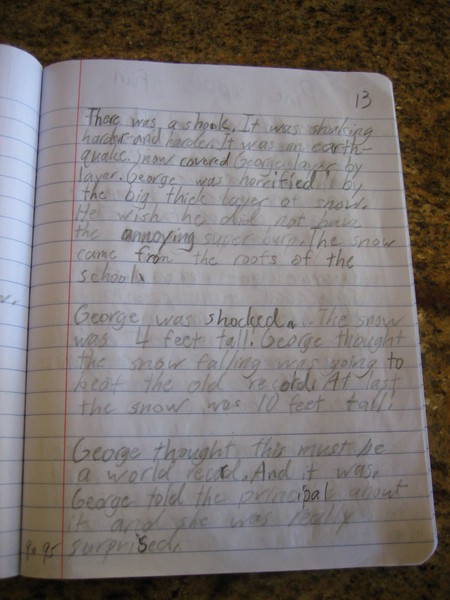 13
There was a shook. It was shaking
harder and harder. It was an earth-
quake. Snow covered George layer by
layer. George was horrified by
the big thick layer of snow.
He wish he did not
the annoying super burp. The snow
came from the roofs of the
school.
George was shocked. The snow
was 4 feet tall. George thought
the snow falling was going to
beat the old record. At last
the snow was 10 feet tall.
George thought this must be
a world record. And it was.
George told the principal about
it and she was really
surprised.